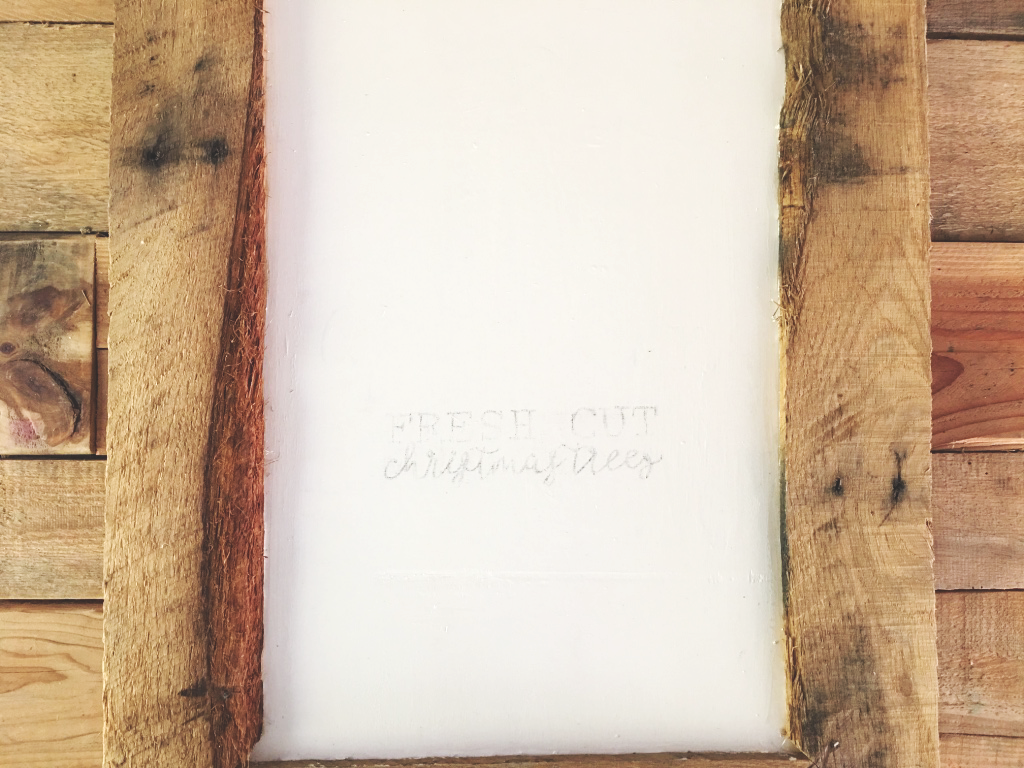 FRESH CUT
christmas trees